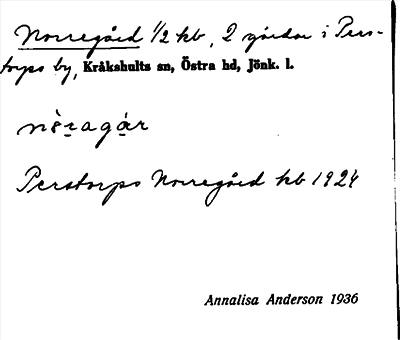 Norregård 1/2 hb, 2 gårdar i Pers-
torps by, Kråkshults sn, Östra hd, Jönk. l.
nòragár
Perstorps Norregård hb 1924
Annalisa Anderson 1936